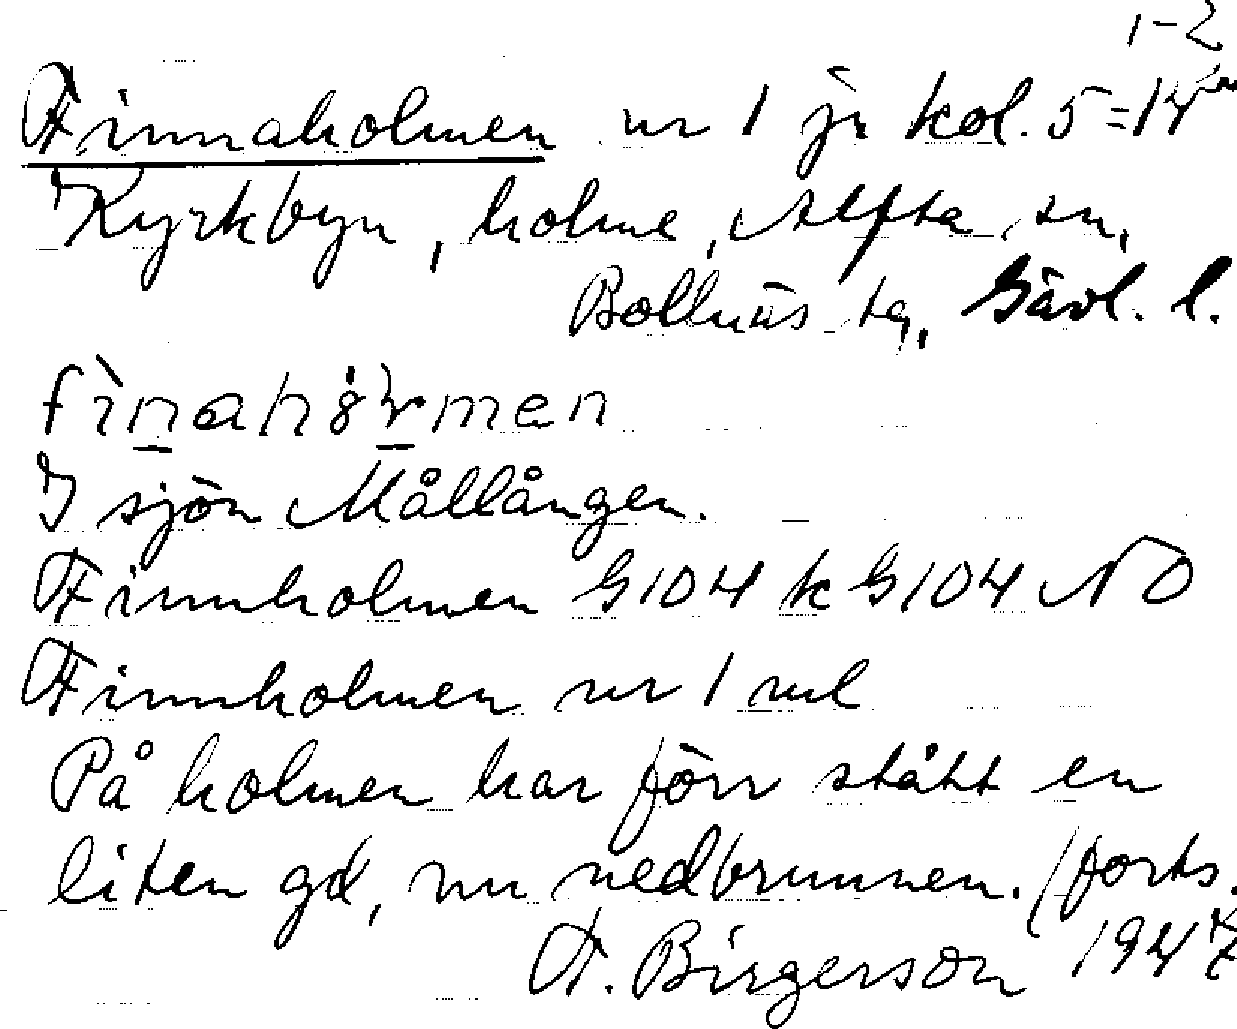 1-2
Finnaholmen nr 1 jr kol. 5=14
Kyrkbyn, holme, Alfta sn,
Bollnäs tg, Gävl. l.
I sjön Mållången.
Finnholmen G104 k G104 NO
Finnholmen nr 1 ml
På holmen har förr stått en
liten gd, nu nedbrunnen. (forts.
F. Birgerson 1947